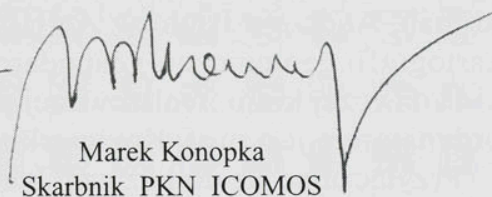 Marek Konopka
Skarbnik PKN ICOMOS